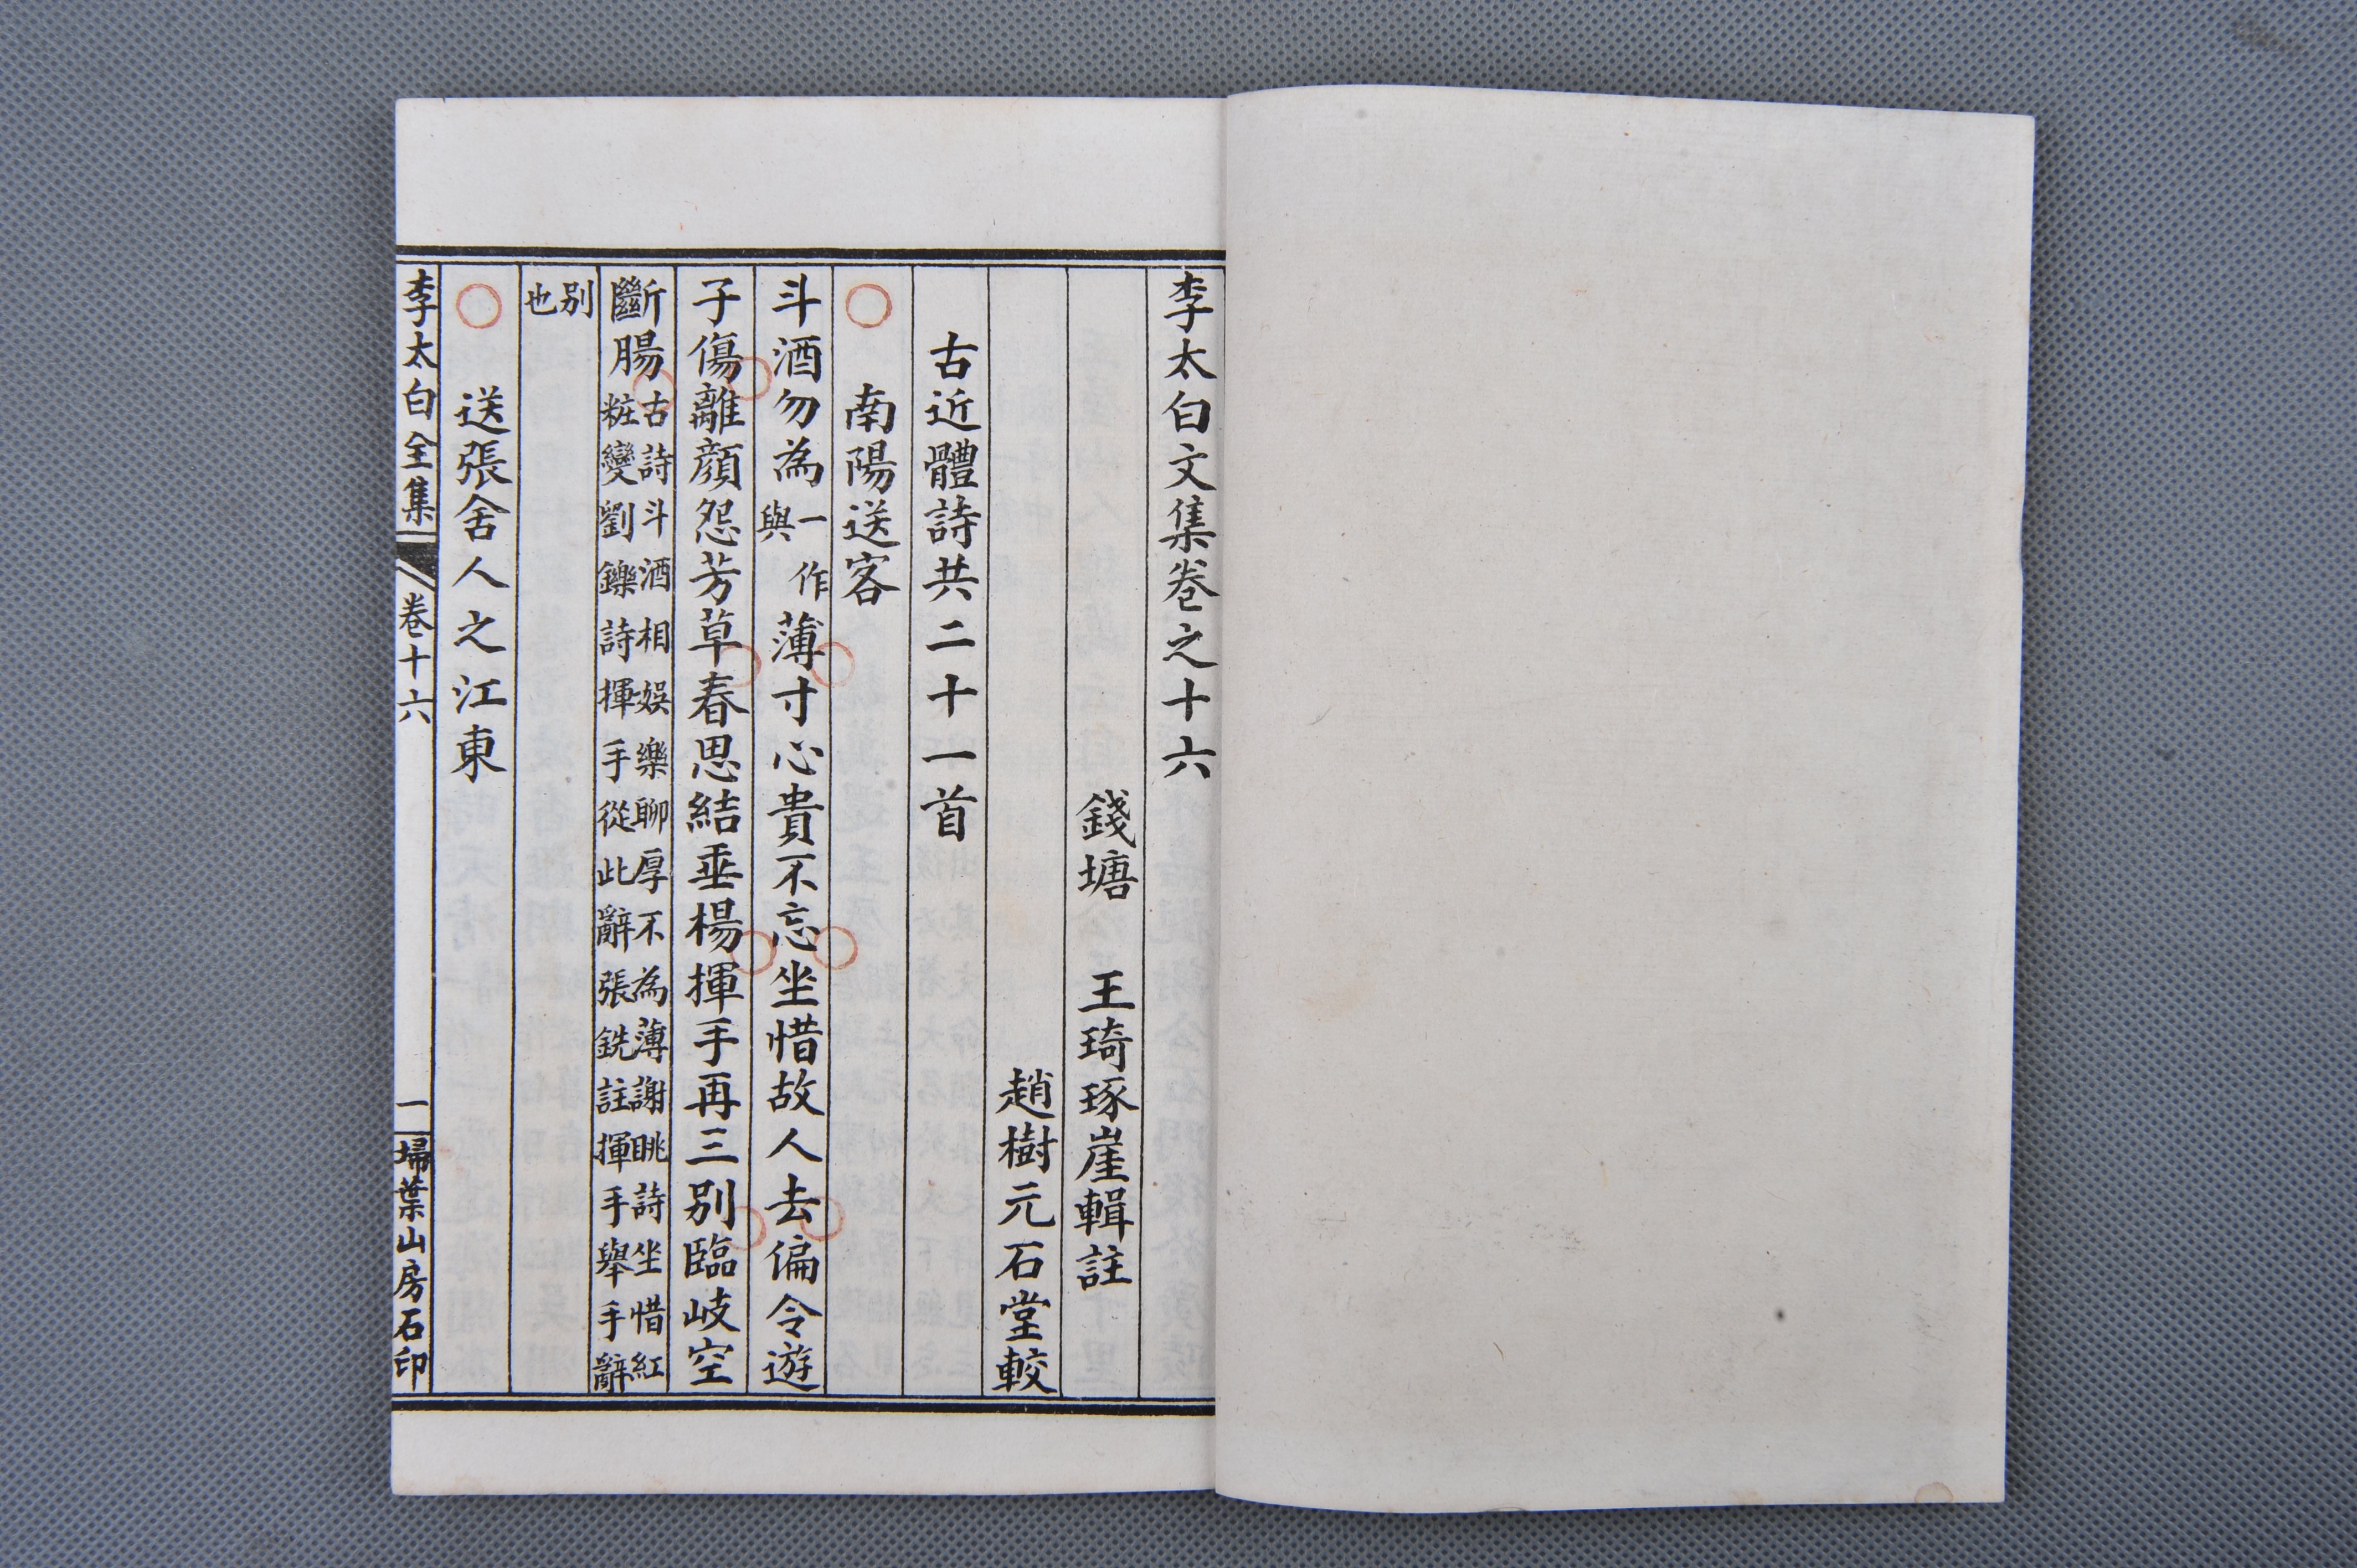 李太白文集卷之十六
錢塘 王琦琢崖輯註
趙樹元石堂較
古近體詩共二十一首
南陽送客
斗酒勿為一作與薄寸心貴不忘坐惜故人去偏令遊
子傷離顏怨芳草春思結垂楊揮手再三別臨岐空
斷腸古詩斗酒相娛樂聊厚不為薄謝眺詩坐惜紅粧變劉鑠詩揮手從此辭張銑註揮手舉手辭
別也
送張舍人之江東
李太白全集 卷十六 一 埽葉山房石印